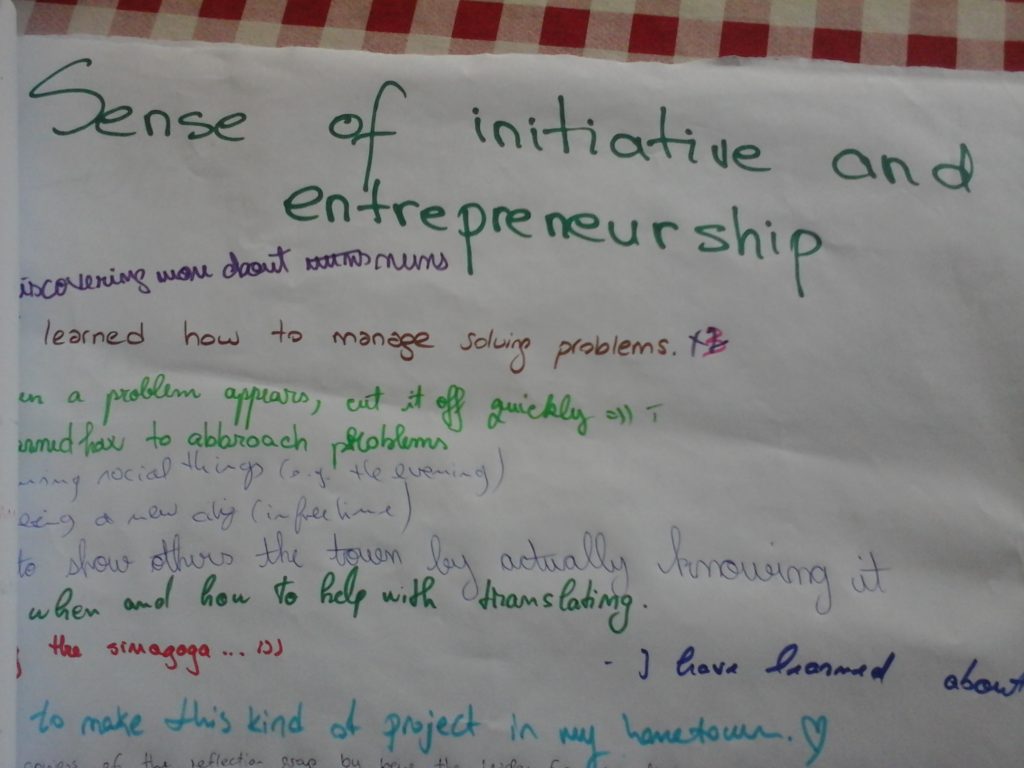 Sense of initiative and
entrepreneurship
iscovering more about nums
learned how to manage solving problems.
en a problem appears, cut it off quickly =)))
arned how to abbroach problems
social things (e.g. the evening)
eing a new city (in free time)
to show others the town by actually knowing it
when and how to help with translating.
the sinagoga... :)))
- I have learned about
to make this kind of project in my hometown. ♡
of the reflection group by being the leader